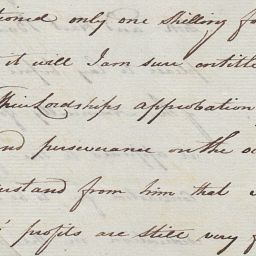 tioned only one Shilling fo
it will I am sure entitle
Their Lordships approbation
and perseverance on the oc
erstand from him that
profits are still very